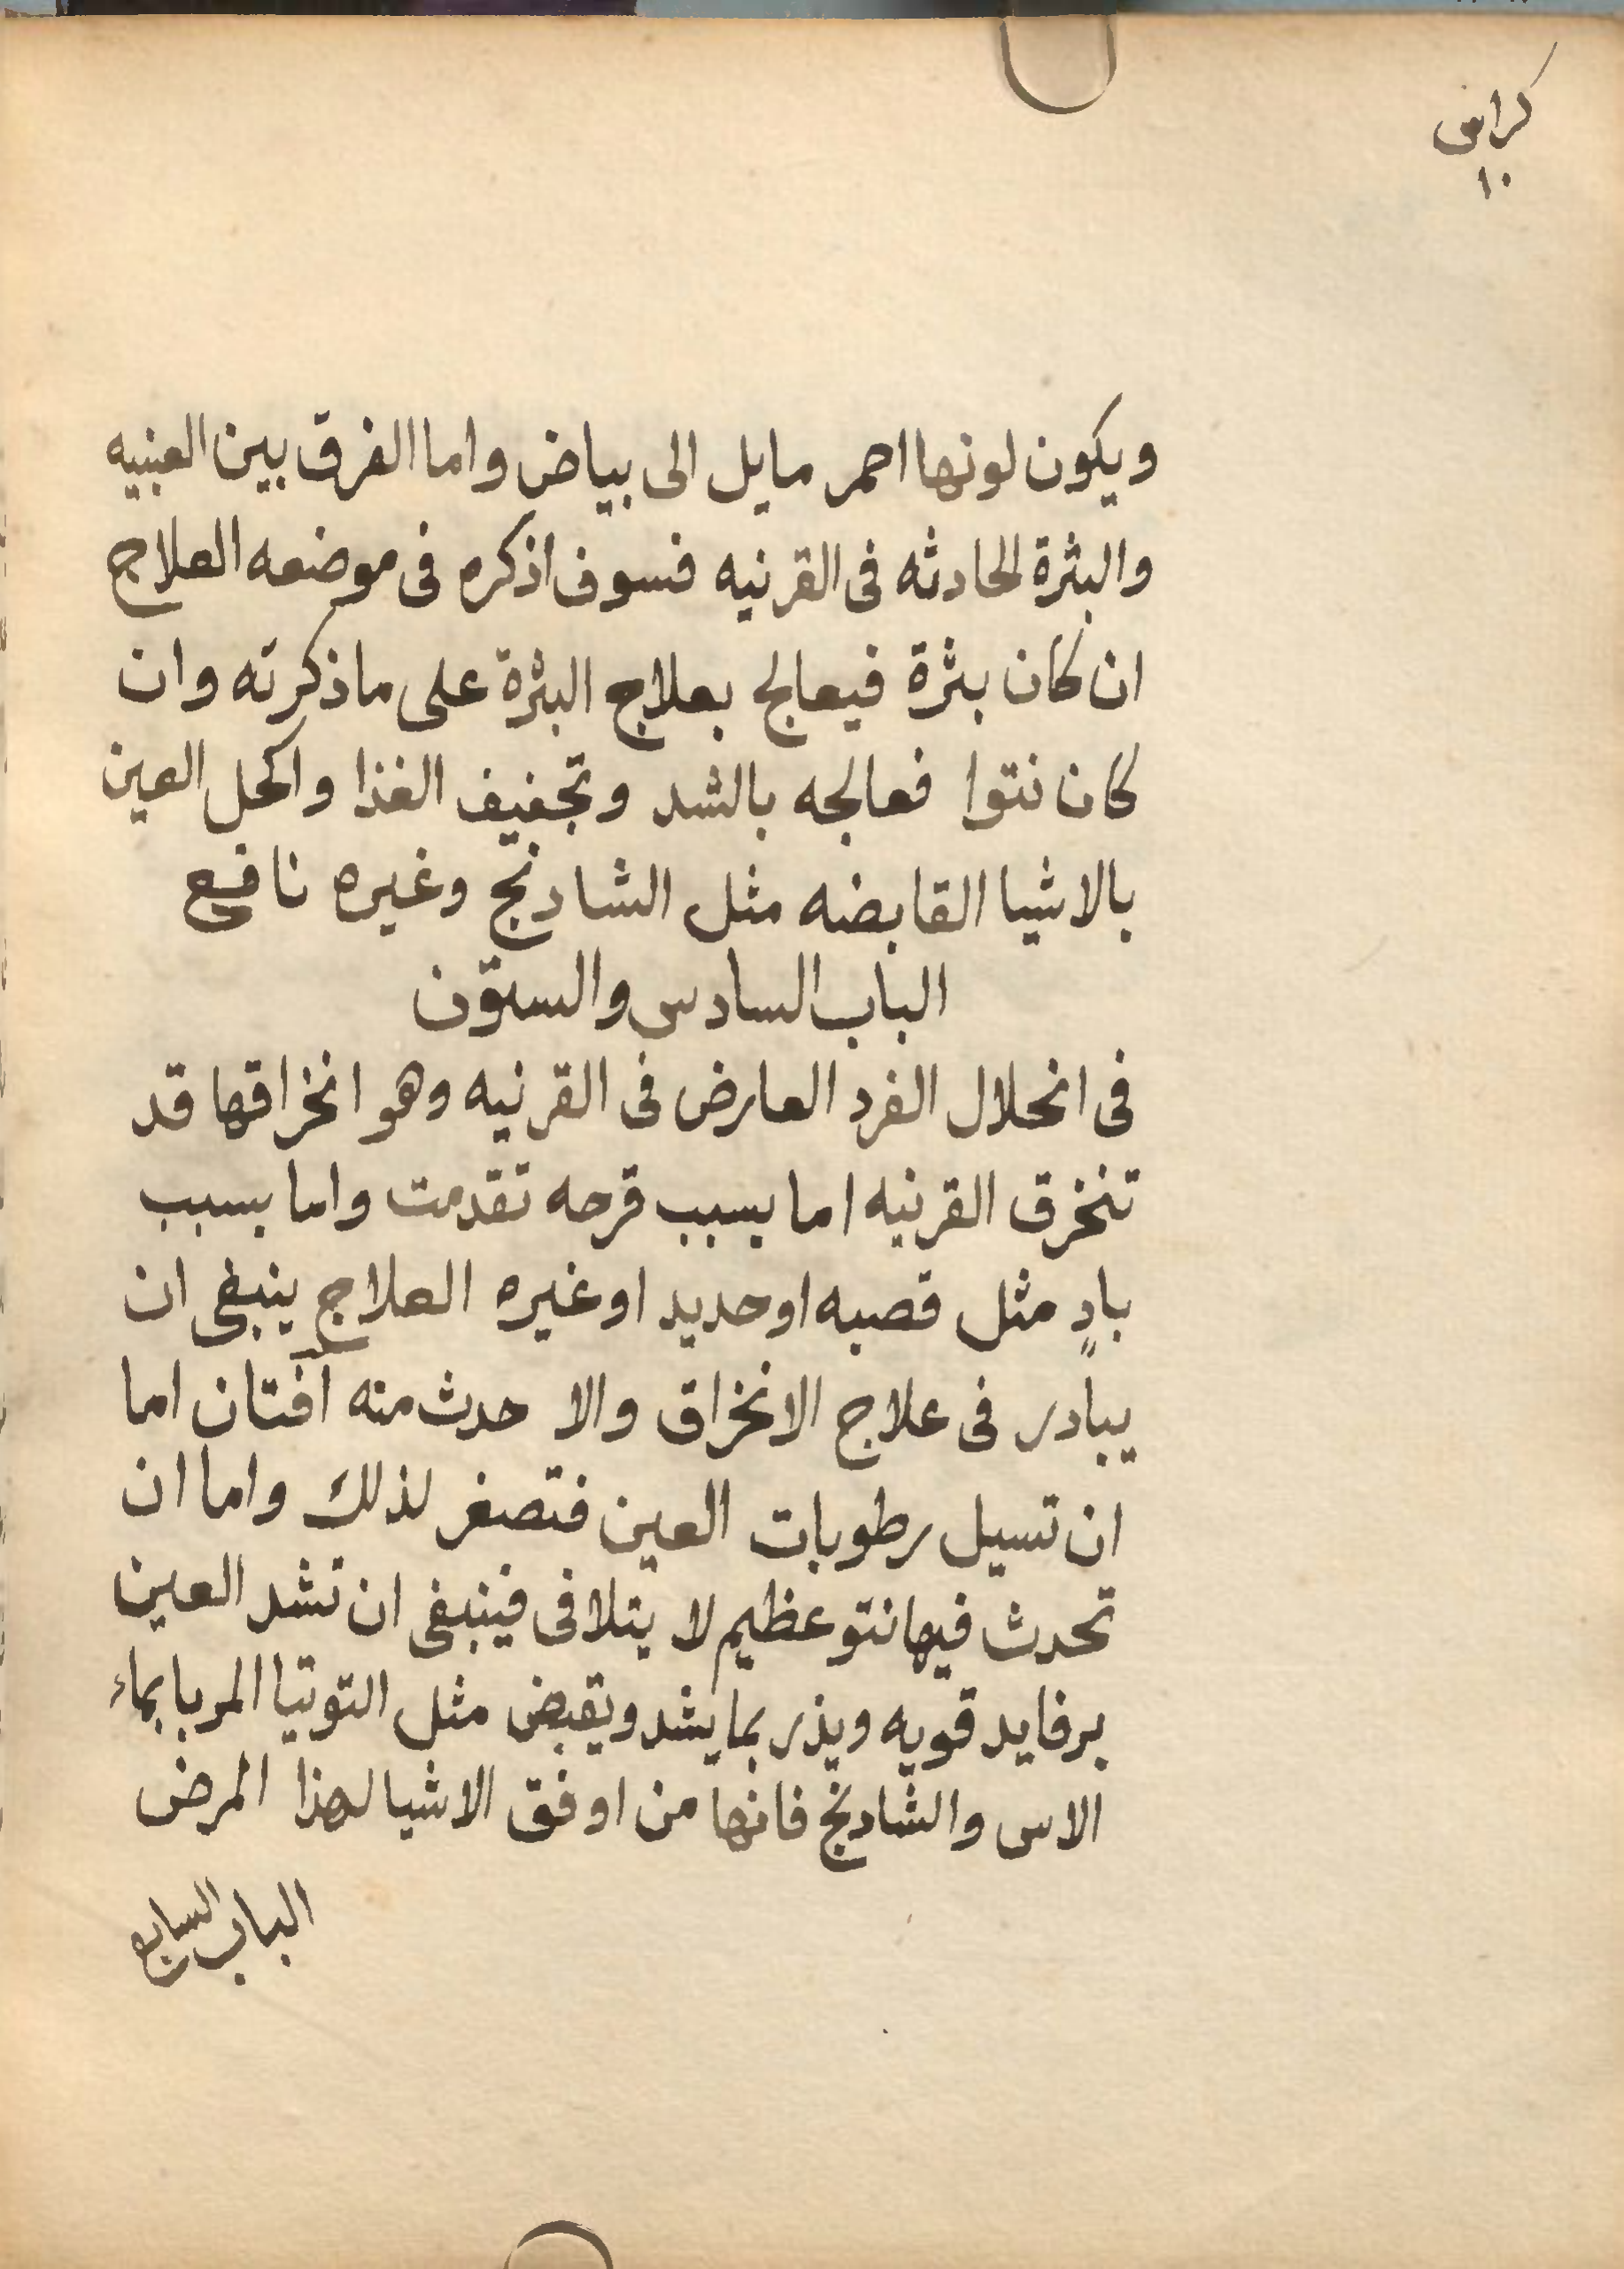 كراس
١٠
ويكون لونها احمر مايل الى بياض واما الفرق بين العنبيه
والبثرة الحادثه فى القرنيه فسوف اذكره فى موضعه العلاج
ان كان بثرة فيعالج بعلاج البثرة على ما ذكرته وان
كان نتوا فعالجه بالشد وتجفيف الغذا واكحل العين
بالاشيا القابضه مثل الشادنج وغيره نافع
الباب السادس والستون
فى انحلال الفرد العارض فى القرنيه وهو انخراقها قد
تنخرق القرنيه اما بسبب قرحه تقدمت واما بسبب
بادٍ مثل قصبه او حديد او غيره العلاج ينبغى ان
يبادر فى علاج الانخراق والا حدث منه آفتان اما
ان تسيل رطوبات العين فتصغر لذلك واما ان
تحدث فيها نتو عظيم لا يتلافى فينبغى ان تشد العين
برفايد قويه ويذر بما يشد ويقبض مثل التوتيا المربا بماء
الاس والشادنج فانها من اوفق الاشيا لهذا المرض
الباب السابع